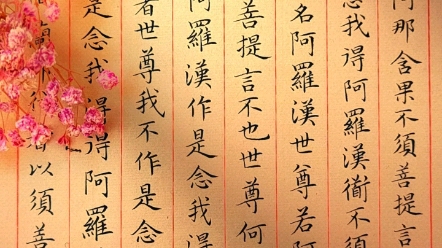 阿那含果不須菩提言
念我得阿羅漢衜不須
名阿羅漢世尊若阿
菩提言不也世尊何
阿羅漢作是念我得
者世尊我不作是念
是念我得得阿羅
者以須菩